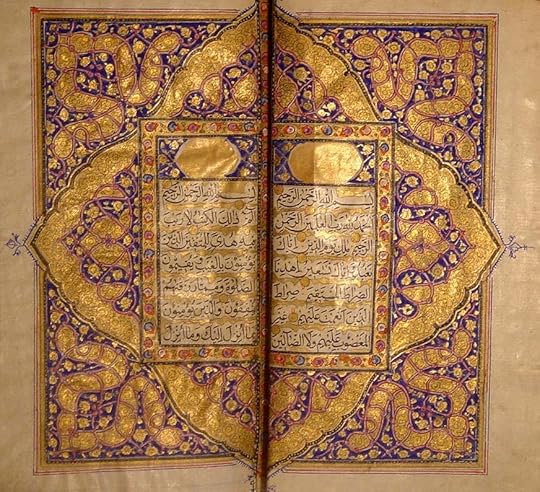 بسم الله الرحمن الرحيم
الحمد لله رب العلمين الرحمن
الرحيم ملك يوم الدين اياك
نعبد واياك نستعين اهدنا
الصراط المستقيم صراط
الذين انعمت عليهم غير
المغضوب عليهم ولا الضالين
بسم الله الرحمن الرحيم
الم ذلك الكتاب لا ريب
فيه هدى للمتقين الذين
يؤمنون بالغيب ويقيمون
الصلوة ومما رزقنهم
ينفقون والذين يؤمنون
بما انزل اليك وما انزل